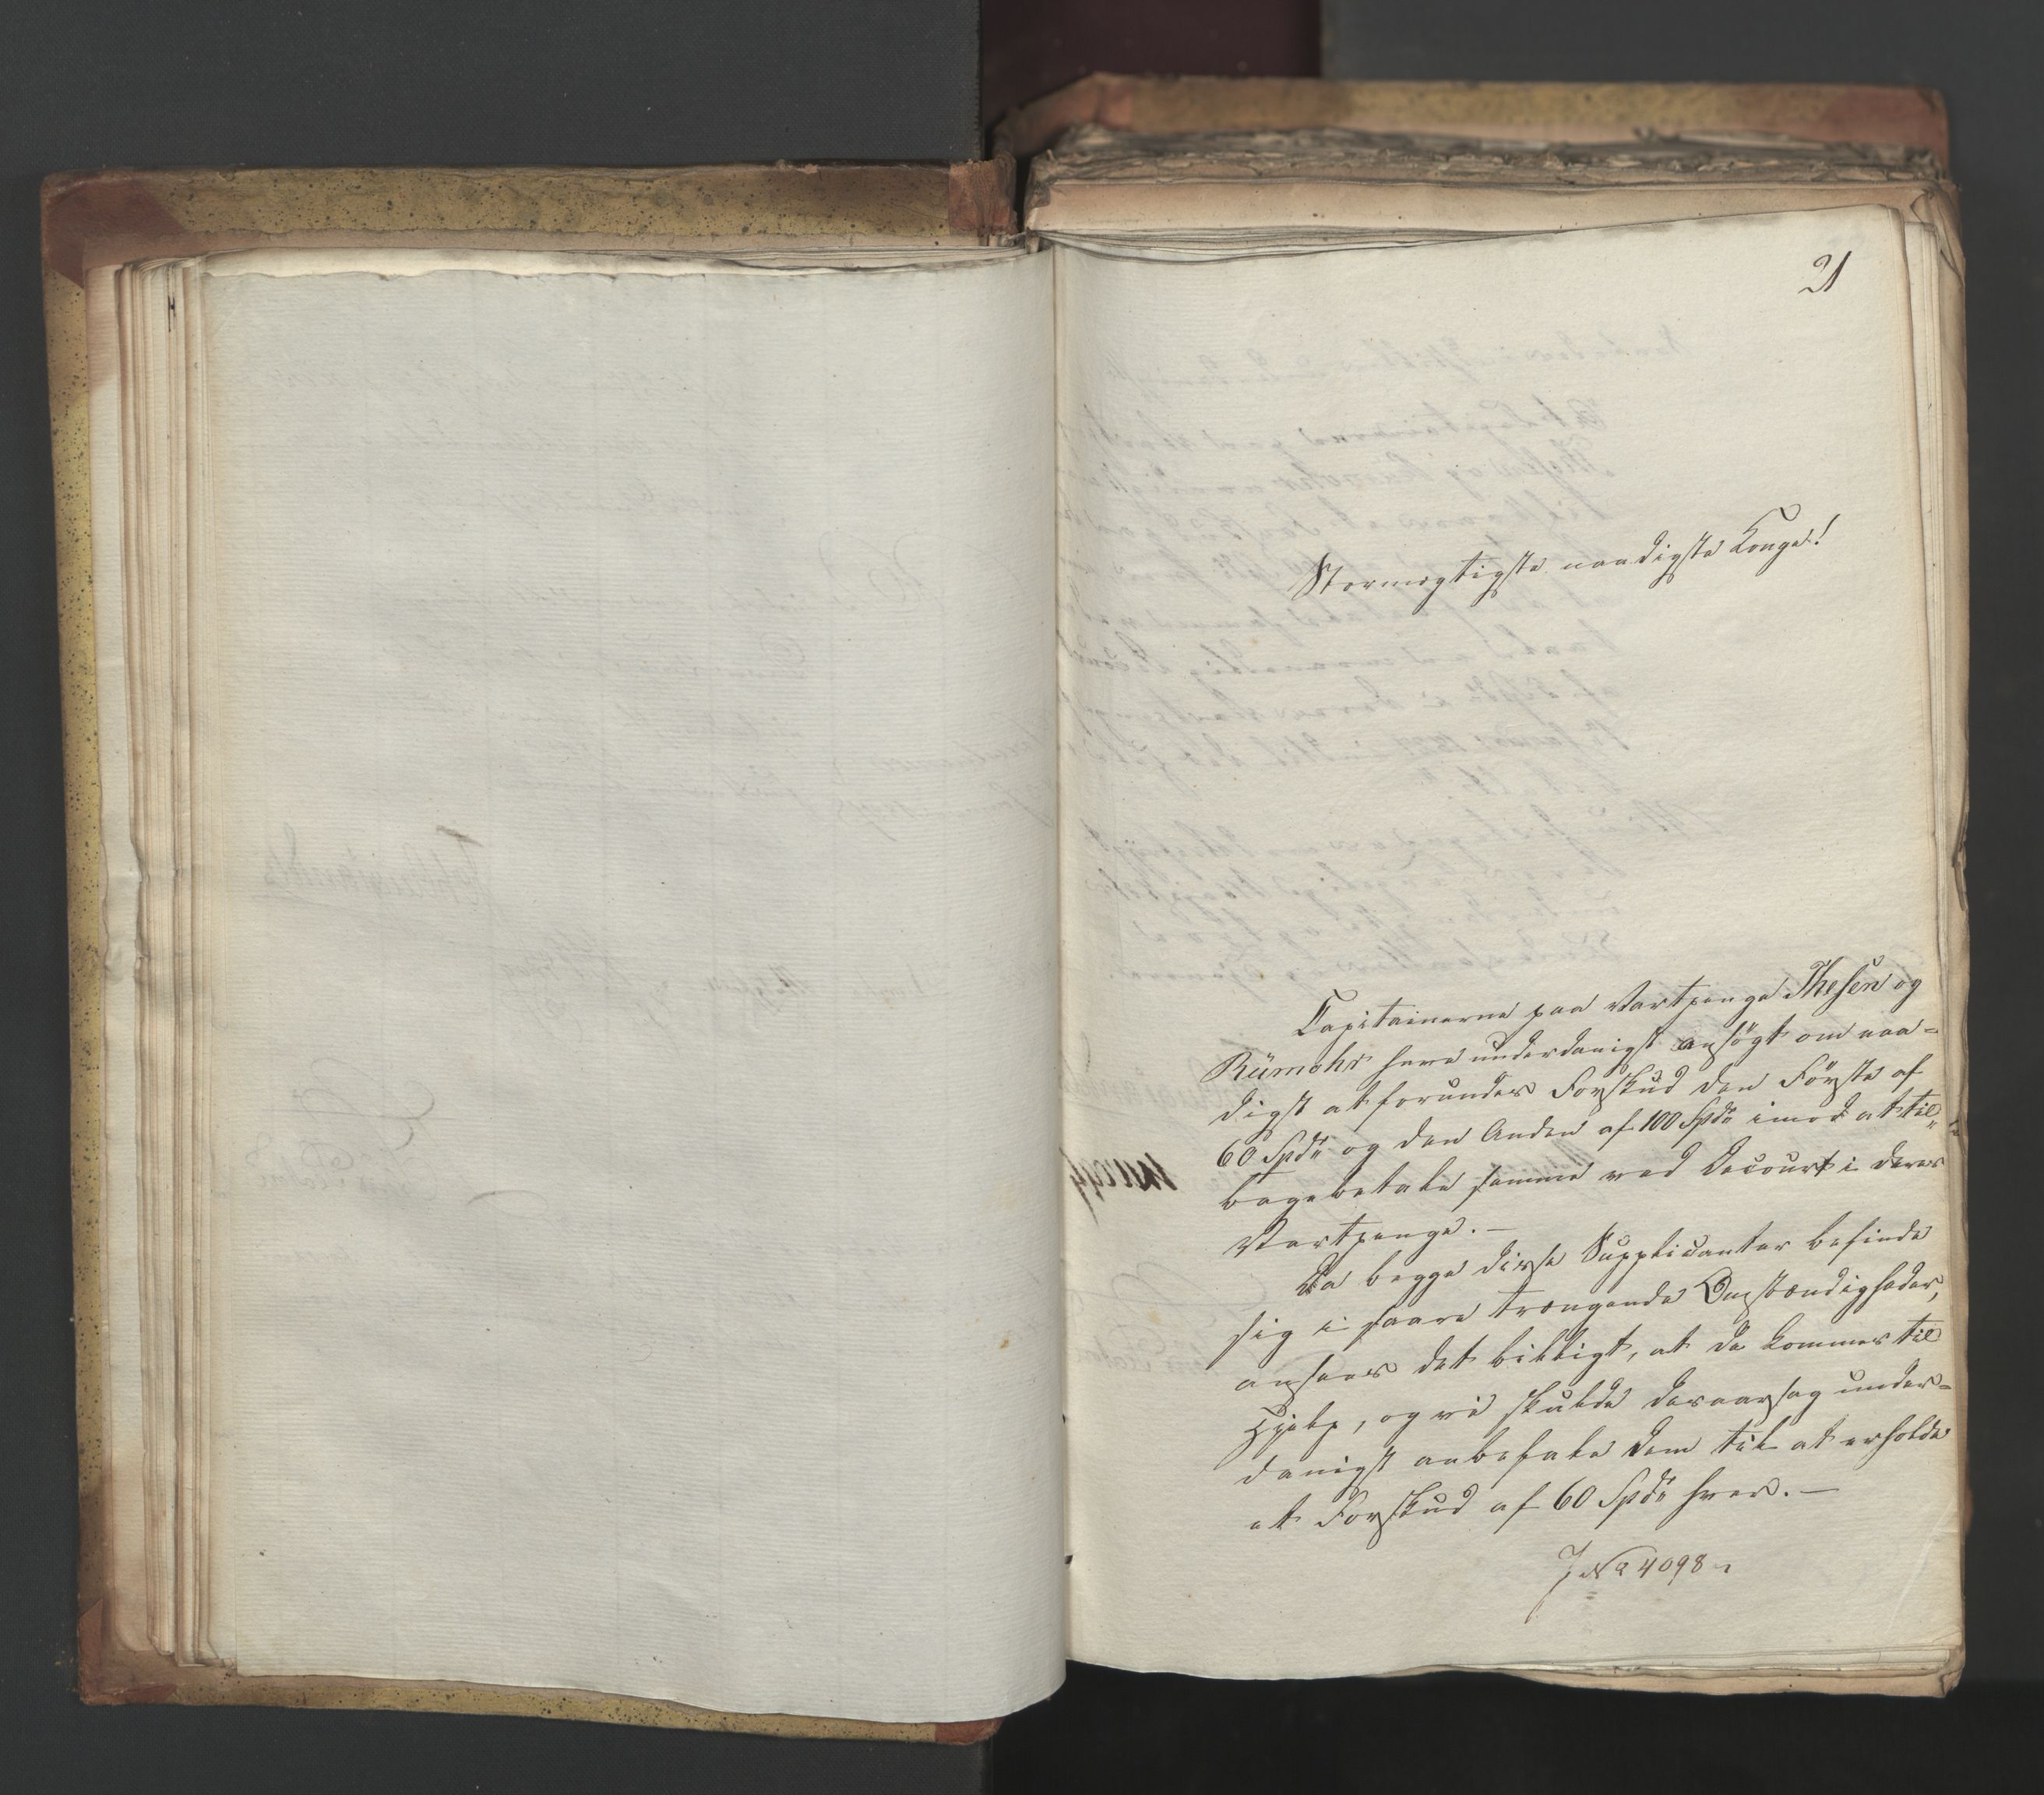 21
Stormægtigste naadigste Konge!
Capitainerne paa Vartpenge Thesen og
Rümohr have underdanigst ansøgt om naa-
digst at forundes Forskud den Første af
60 Spd og den Anden af 100 Spd imod at til-
bagebetale samme ved Decourt i deres
Vartpenge.-
Da begge disse Supplicanter befinde
sig i saare trængende Omstændigheder,
ansees det billigt, at de kommes til
Hjelp, og vi skulde desaarsag under-
danigst anbefale dem til at erholde
et Forskud af 60 Spd hver.-
J No 4098